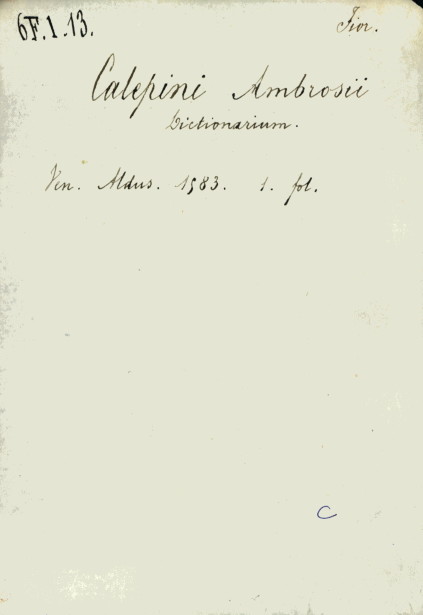 6F.1.13.
Fior.
Calepini Ambrosii
Dictionarium.
Ven. Aldus. 1583. 1. fol.
C